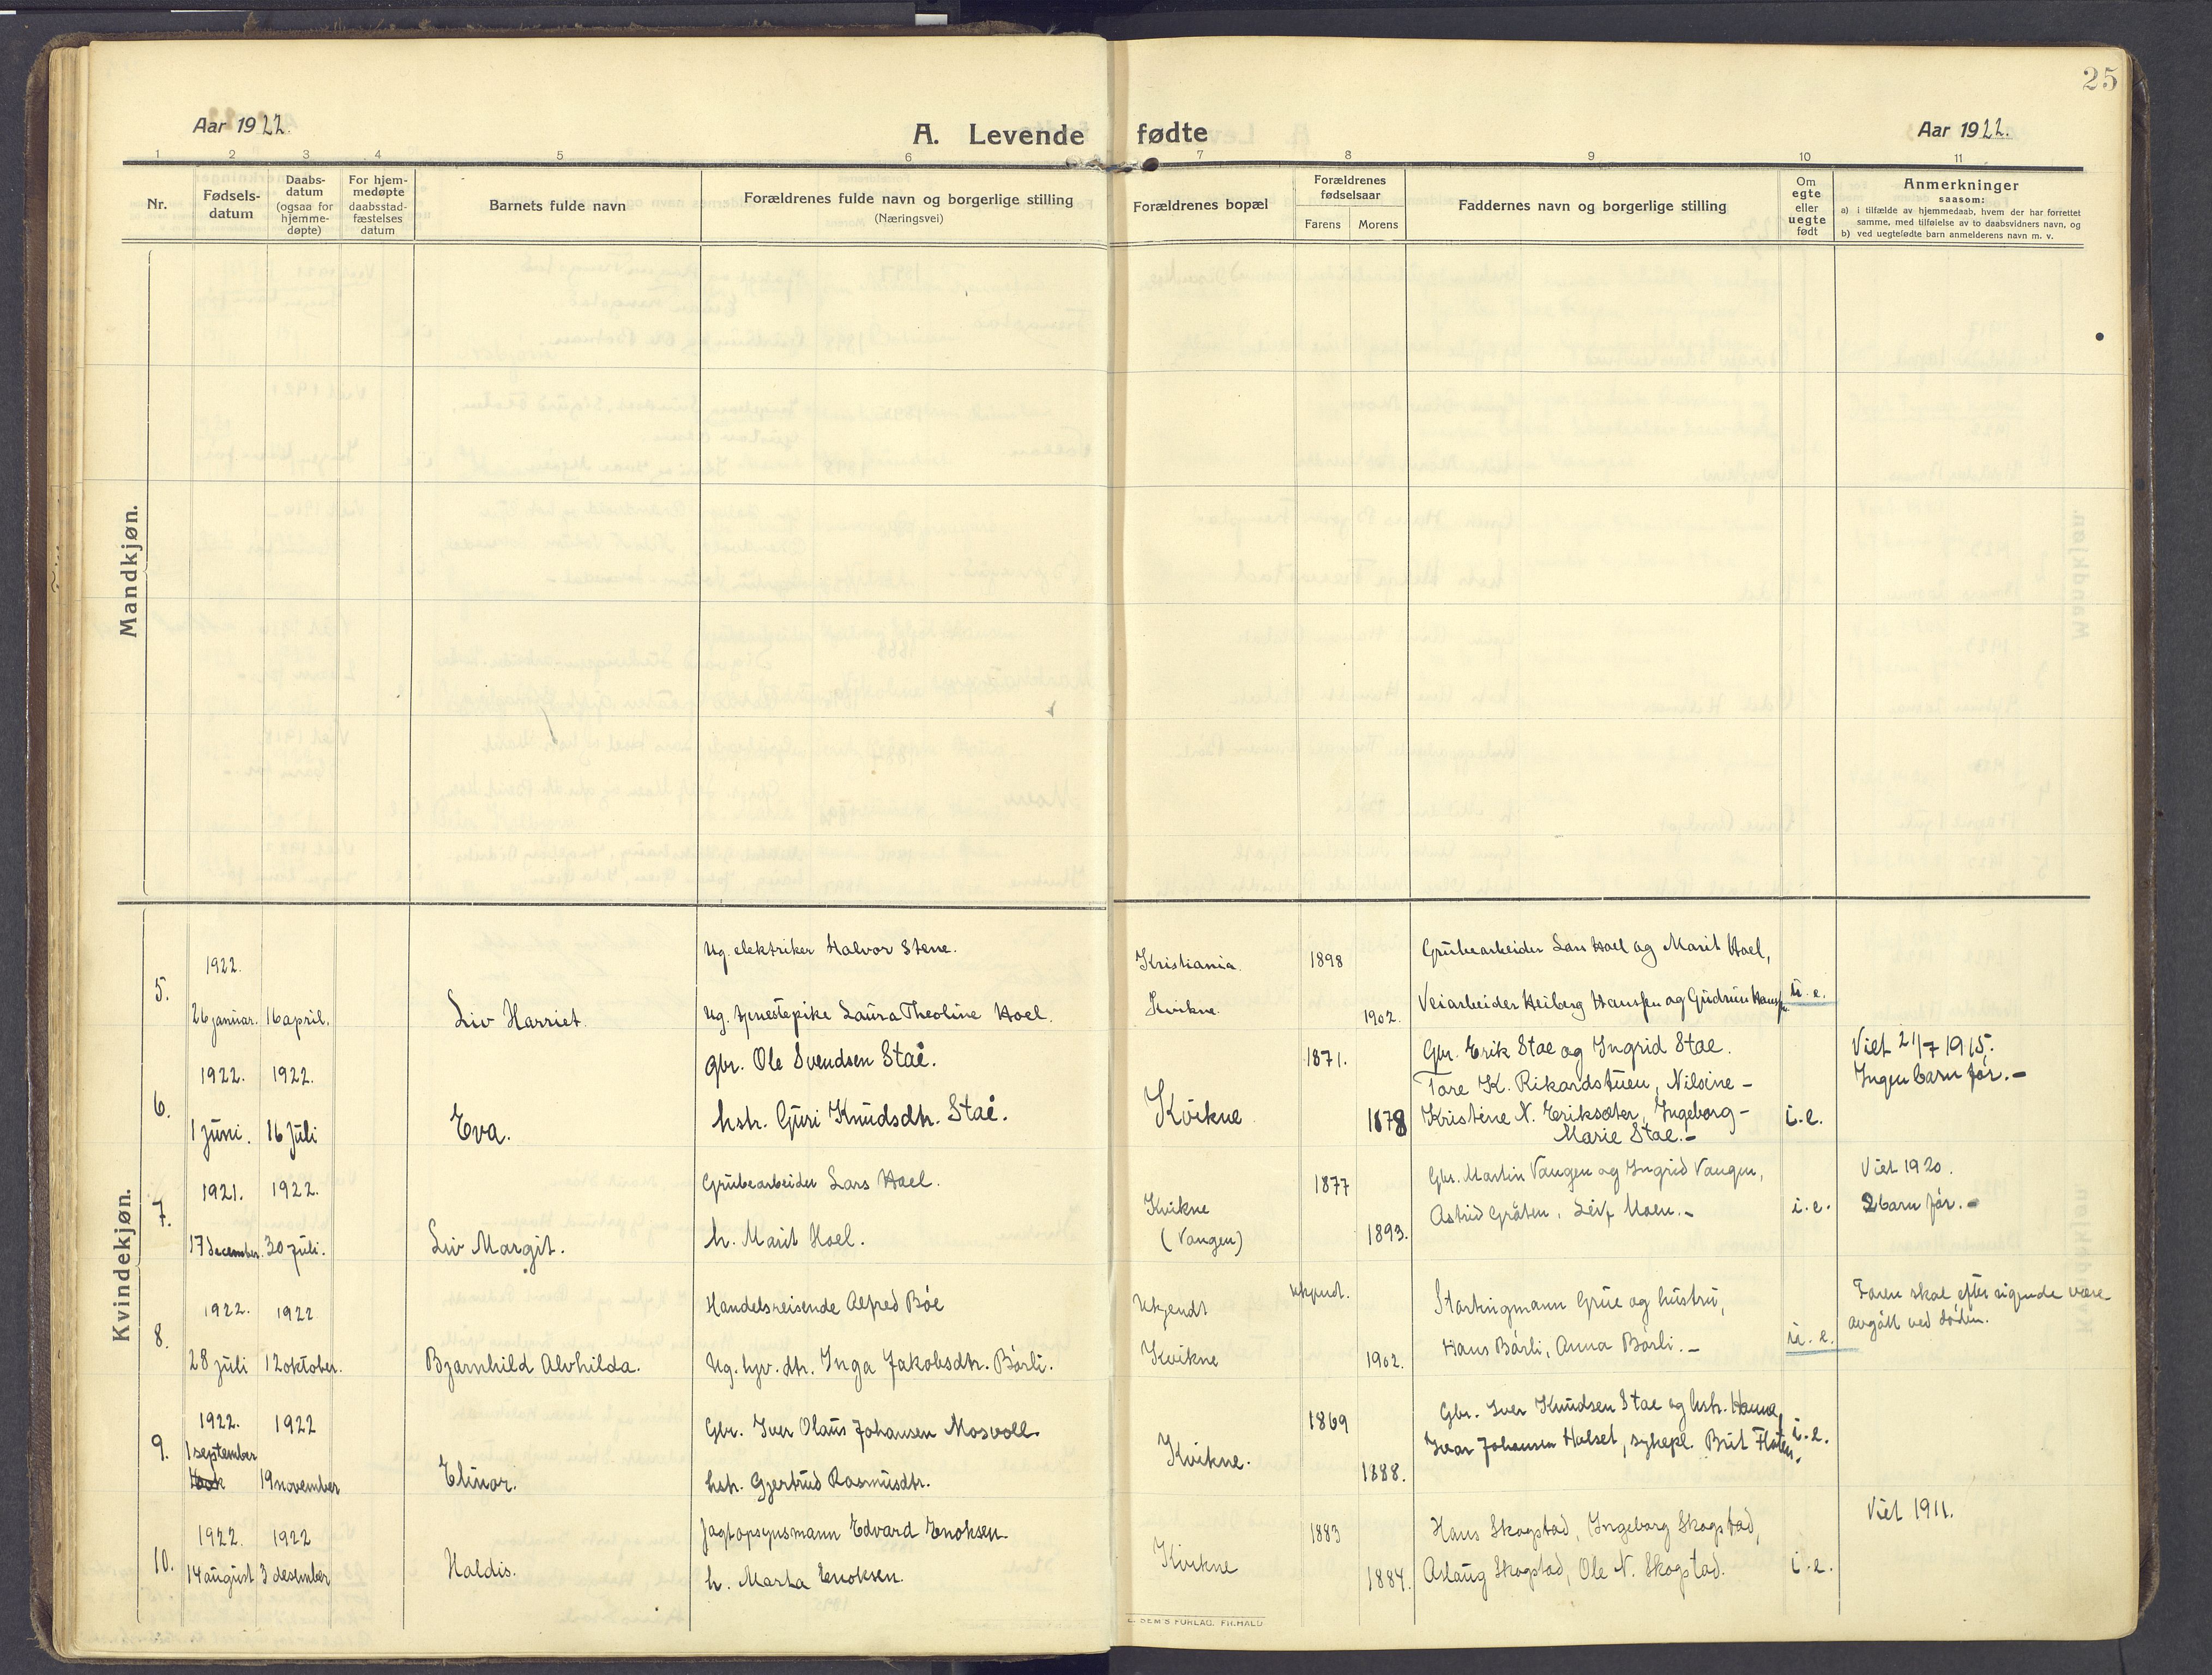 25
Aar 1922.
A. Levende fødte
Aar 1922.
1 2 3 4 5 6 7 8 9 10 11
Nr.
Fødsels-
datum
Daabs-
datum
(ogsaa for
hjemme-
døpte)
For hjem-
medøpte
daabsstad-
fæstelses
datum
Barnets fulde navn
Forældrenes fulde navn og borgerlige stilling
(Næringsvei)
Forældrenes bopæl
Forældrenes
fødselsaar
Farens Morens
Faddernes navn og borgerlige stilling
Om
egte
eller
uegte
født
Anmerkninger
saasom:
a) i tilfælde av hjemmedaab, hvem der har forrettet
samme, med tilføielse av to daabsvidners navn, og
b) ved uegtefødte barn anmelderens navn m. v.
Mandkjøn.
Kvindekjøn.
5.
1922.
26 januar. 16 april.
Liv Harriet.
Ug. elektriker Halvor Stene.
Ug. tjenestepike Laura Theoline Hoel.
Kristiania.
Kvikne.
1898
1902.
Grubearbeider Lars Hoel og Marit Hoel,
Veiarbeider Heiberg Hanssen og Gudrun Hanssen
u. e.
6.
1922. 1922.
1 juni. 16 juli
Eva.
Gbr. Ole Svendsen Stai.
hstr. Guri Knudsdtr. Stai.
Kvikne
1871.
1878
Gbr. Erik Stae og Ingrid Stae.
Tore K. Rikardstuen, Nilsine-
Kristine N. Eriksæter, Ingeborg-
Marie Stae.-
i.e.
Viet 21/7 1915.
Ingen barn før.-
7.
1921. 1922.
17 december. 30 juli.
Liv Margit.
Grubearbeider Lars Hoel.
h. Marit Hoel.
Kvikne
(Vangen)
1877
1893.
Gbr. Martin Vangen og Ingrid Vangen,
Astrid Gråten, Leif Moen.-
i.e.
Viet 1920.
2 barn før.-
8.
1922. 1922
28 juli 12 oktober.
Bjarnhild Alvhilda.
Handelsreisende Alfred Bøe
Ug. hjv. dtr. Inga Jakobsdtr. Børli.
Ukjendt
Kvikne
Ukjendt.
1902.
Stortingmann Grue og hustru,
Hans Børli, Anna Børli.-
u. e.
Faren skal efter sigende være
avgått ved døden.
9.
1922. 1922
1 september
19 november
Elinor.
Gbr. Iver Olaus Johansen Mosvoll.
hstr. Gjertrud Rasmusdtr.
Kvikne.
1869
1888.
Gbr. Iver Knudsen Stae og hstr. Hanna,
Ivar Johansen Halset, sykepl. Brit Floten.
i.e.
10.
1922. 1922
14 august 3 desember
Haldis.
Jagtopsynsmann Edvard Enoksen.
h. Marta Enoksen.
Kvikne
1883
1884.
Hans Skogstad, Ingeborg Skogstad,
Aslaug Skogstad, Ole N. Skogstad.
i.e.
Viet 1911.